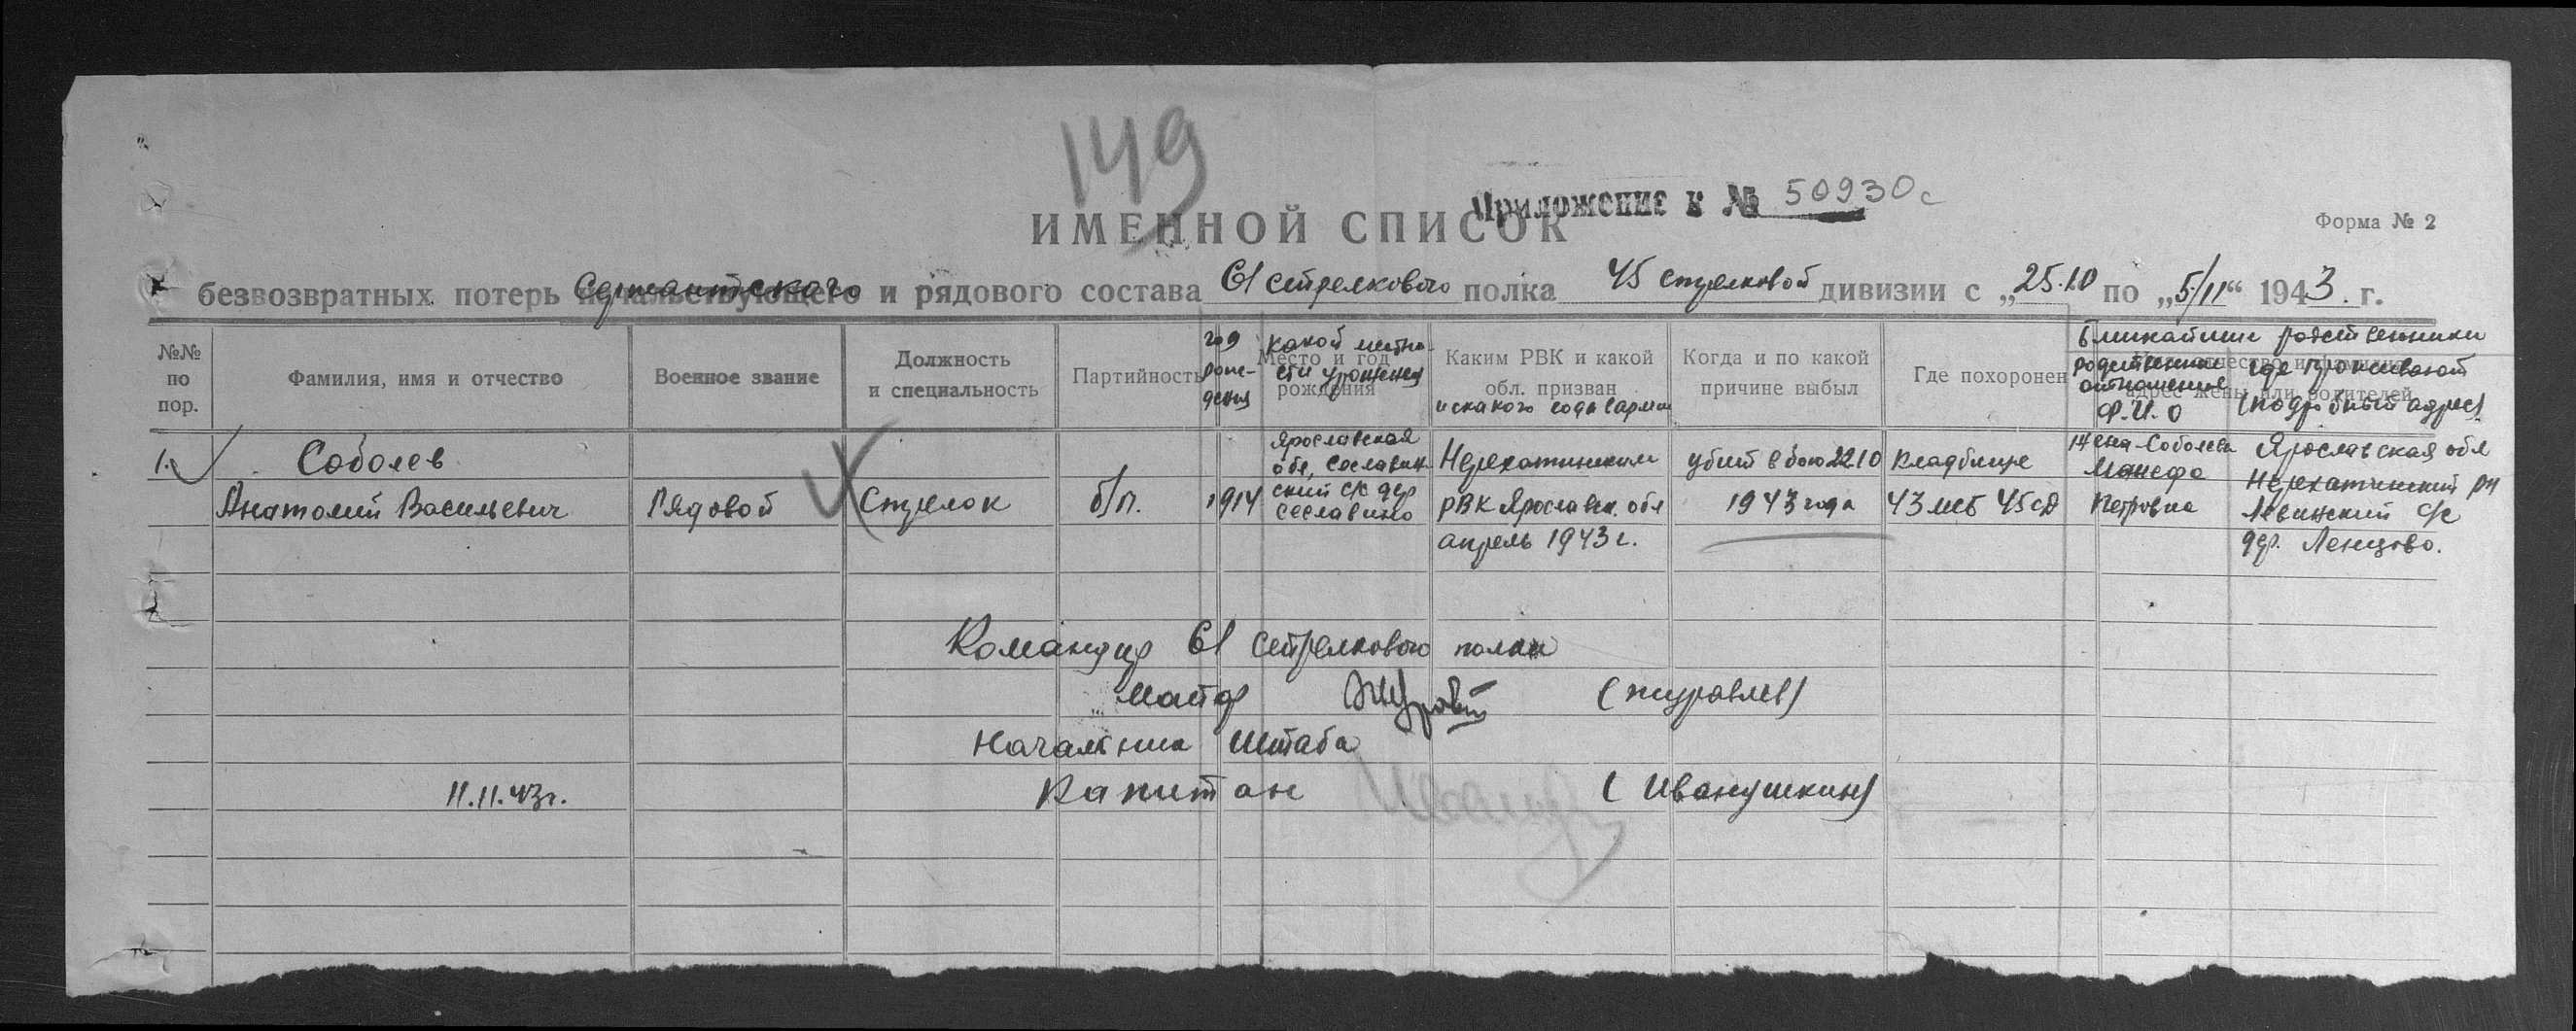 149
Приложение к № 50930с
ИМЕННОЙ СПИСОК
Форма № 2
безвозвратных потерь сержантского и рядового состава 61 стрелкового полка 45 стрелковой дивизии с „25.10 по „5/11“ 1943 г.
№№ по пор.
Фамилия, имя и отчество
Военное звание
Должность и специальность
Партийность
год рождения
Место и год рождения
какой местности урожен
Каким РВК и какой обл. призван
и с какого года в армии
Когда и по какой причине выбыл
Где похоронен
Ближайшие родственники
родственные отношения Ф.И.О
где проживают (подробный адрес)
адрес жены или родителей
1.
Соболев
Анатолий Васильевич
Рядовой
Стрелок
б/п.
1914
Ярославская
обл,
ский с/с дер
Сеславино
Нерехатинским
РВК Ярославск. обл
апрель 1943 г.
убит в бою 22.10
1943 года
кладбище
43 мсб 45 сд
жена-Соболева
Петровна
Ярославская обл
Нерехатинский рн
с/с
дер. Ленцово.
Командир 61 стрелкового полка
майор (Журавлев)
Начальник штаба
Капитан (Иванушкин)
11.11.43г.